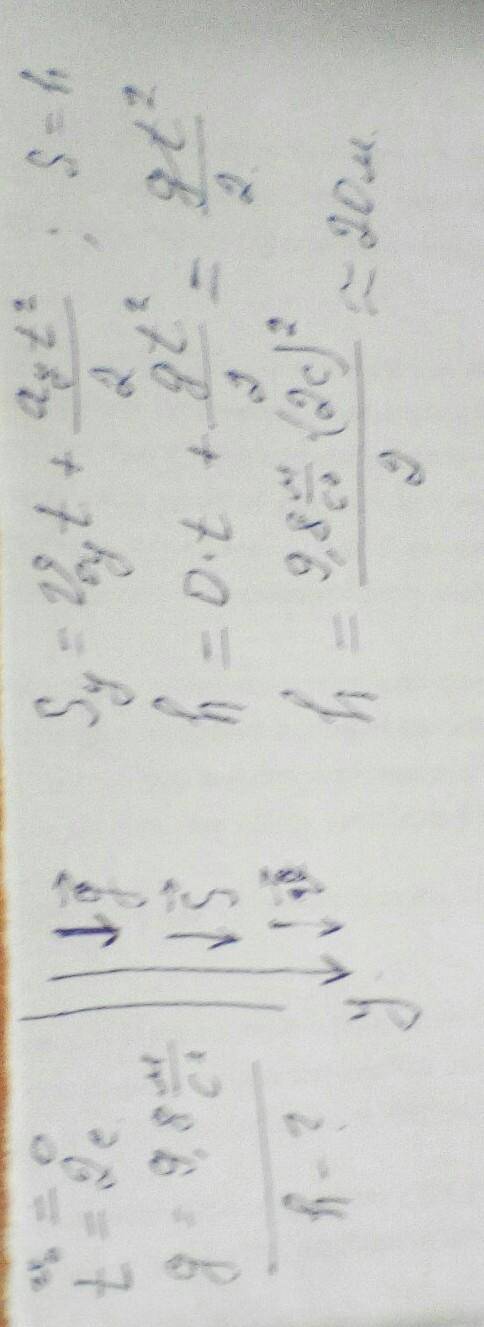 v₀ = 0
t = 2c
g = 9,8 м/c²
h - ?
g⃗
S⃗
v⃗
y
S_y = v_{0y}t + a_y t²/2 ; S = h
h = 0·t + gt²/2 = gt²/2
h = 9,8 м/c² (2c)²/2 ≈ 20м